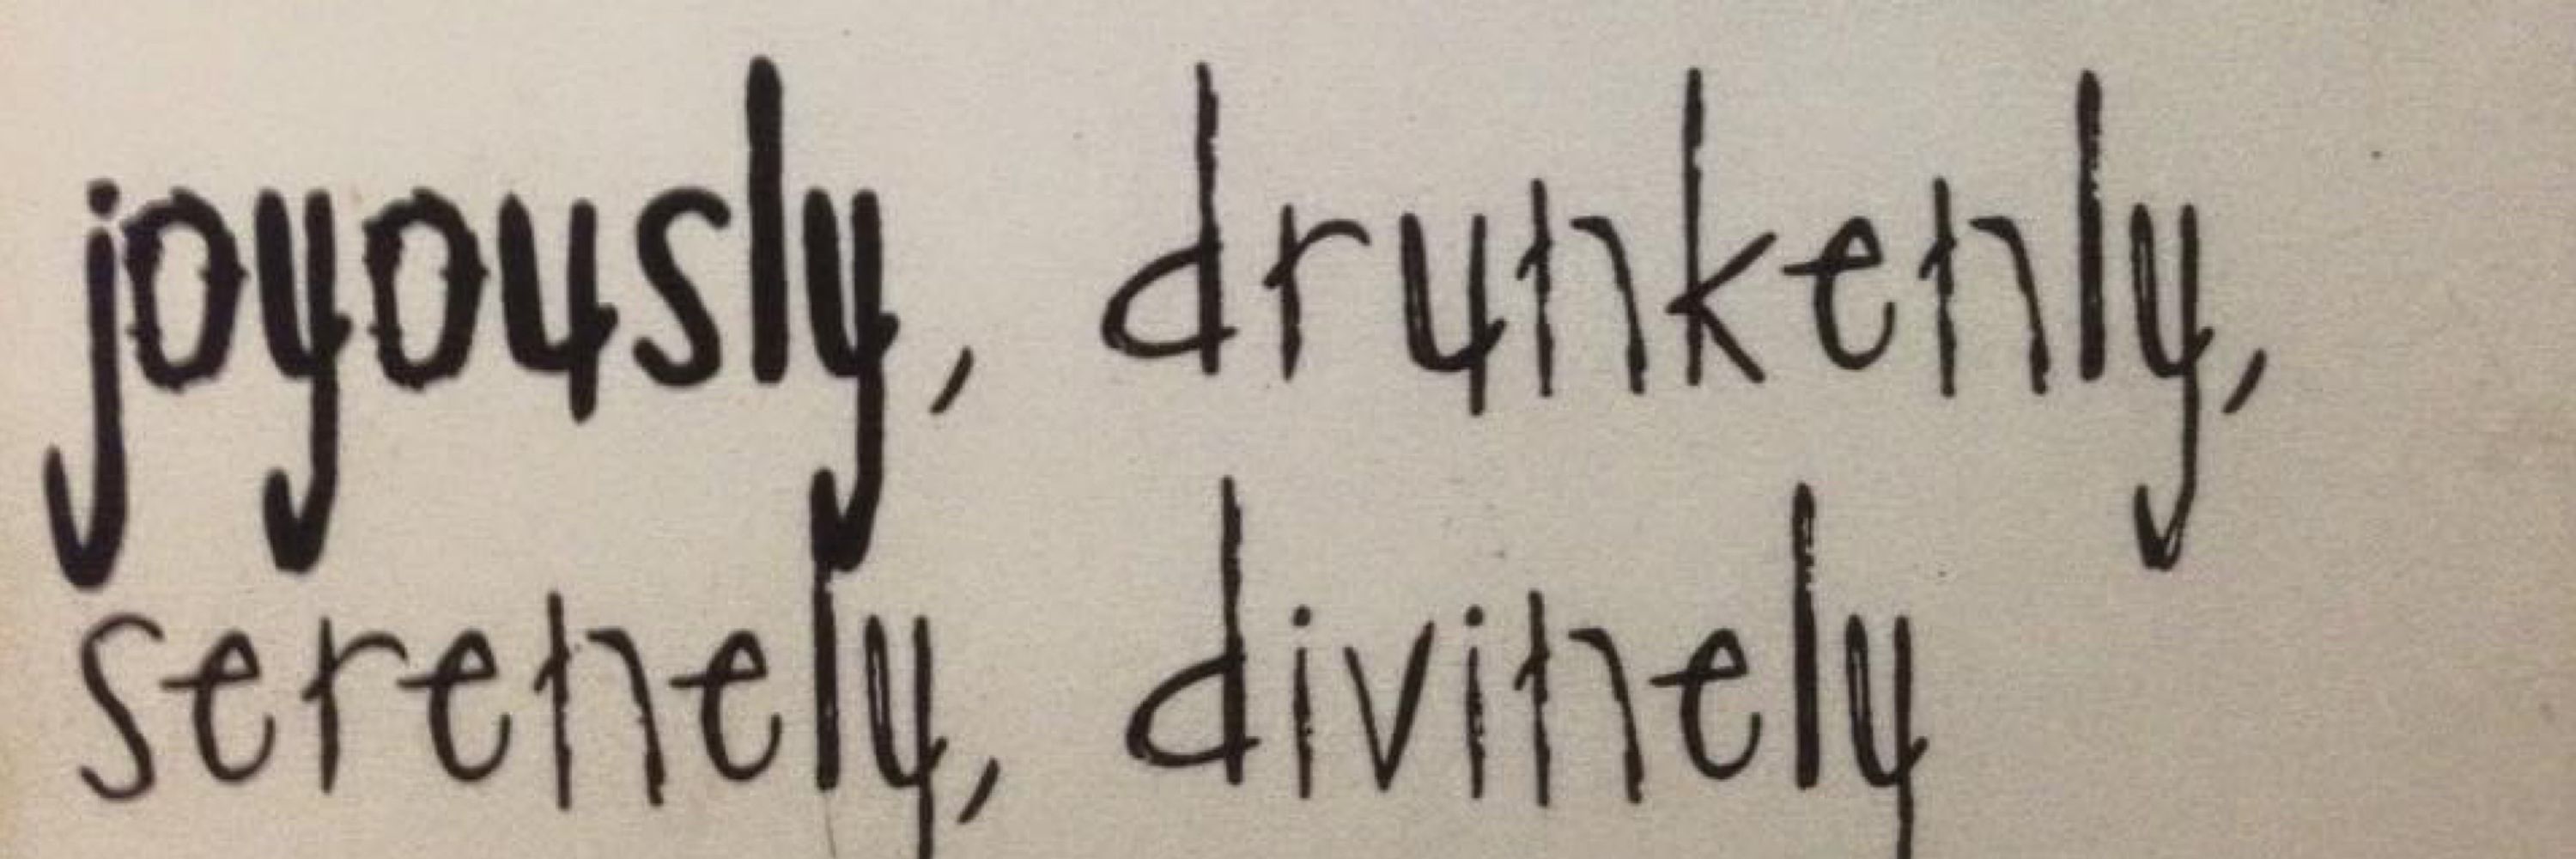 joyously, drunkenly,
serenely, divinely